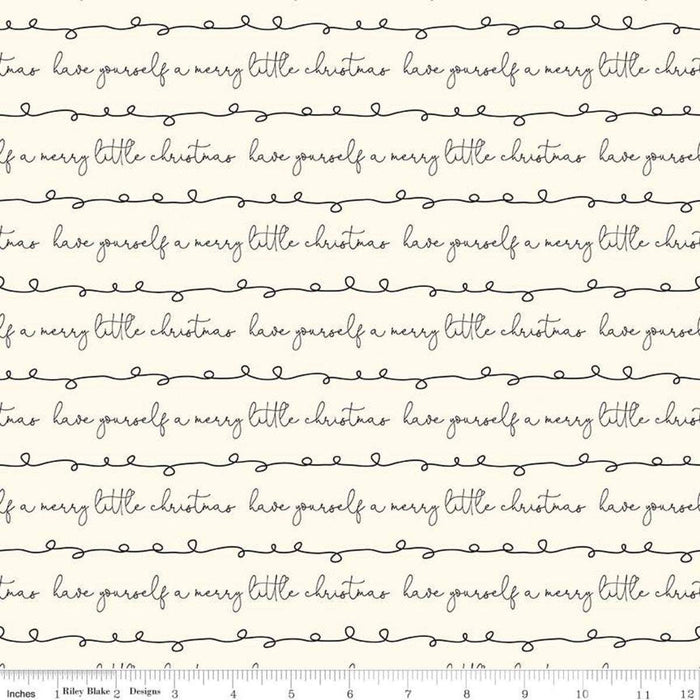 tmas have yourself a merry little christmas have yourself a merry little chris
lf a merry little christmas have yourself a merry little christmas have yoursel
tmas have yourself a merry little christmas have yourself a merry little christ
lf a merry little christmas have yourself a merry little christmas have yoursel
tmas have yourself a merry little christmas have yourself a merry little christ
lf a merry little christmas have yourself a merry little christmas have yoursel
tmas have yourself a merry little christmas have yourself a merry little christ
Inches 1 Riley Blake 2 Designs 3 4 5 6 7 8 9 10 11 12